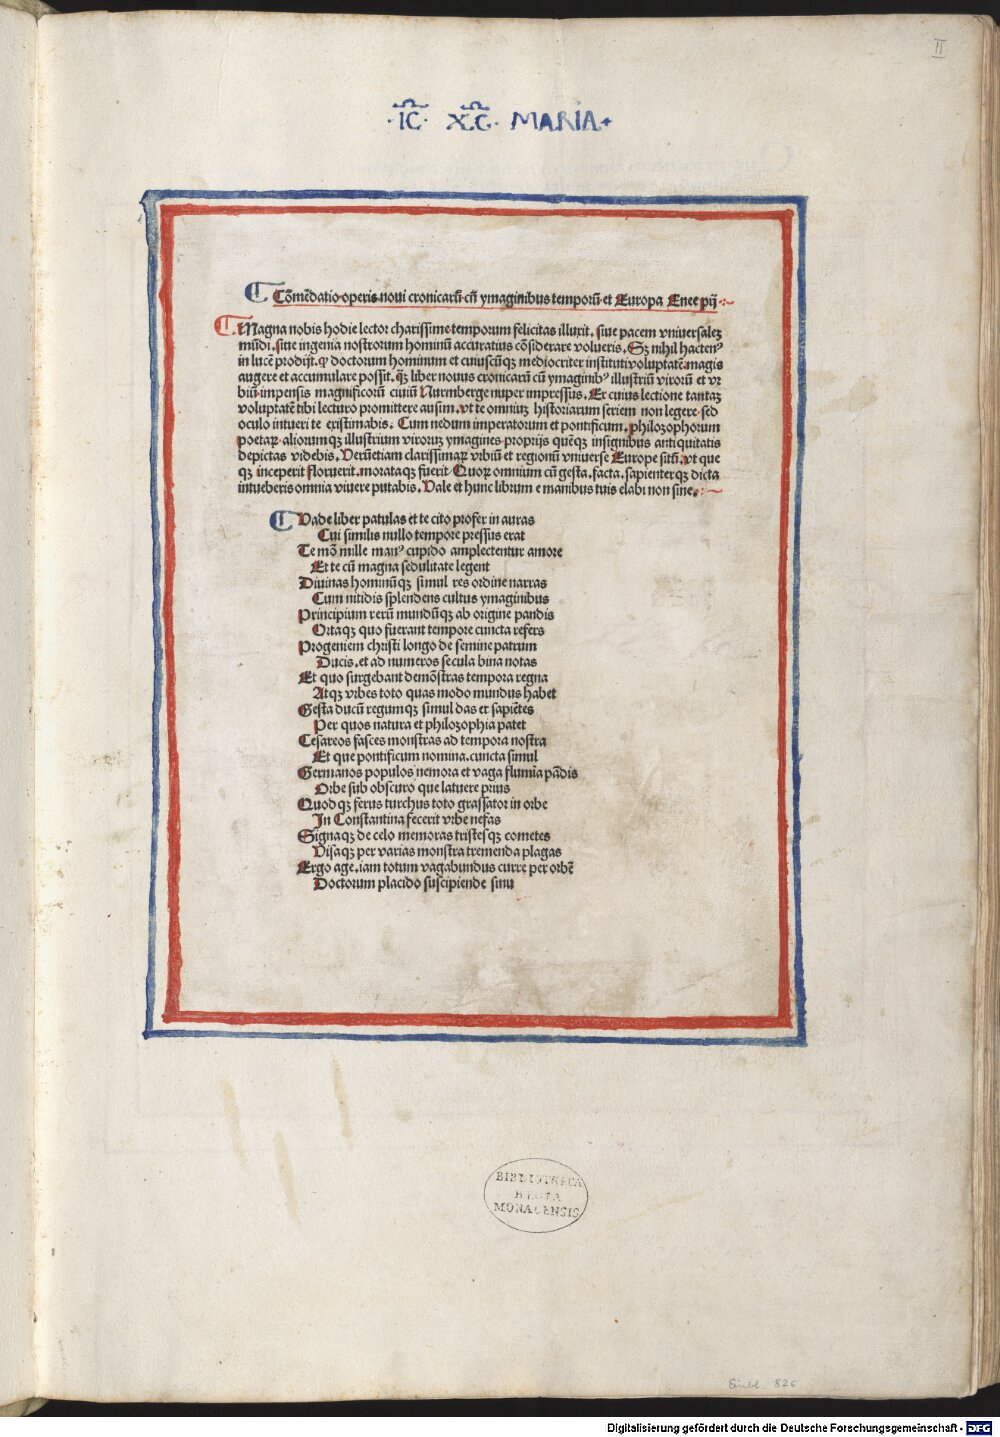 II
·IC̅· X̅C̅· MARIA·
Cōmēdatio operis noui cronicarū cū ymaginibus temporū et Europa Enee pij
Magna nobis hodie lector charissime temporum felicitas illuxit. siue pacem vniuersalez
mūdi. siue ingenia nostrorum hominū accuratius cōsiderare volueris. Sꝫ nihil hactenꝰ
in lucē prodijt. ꝙ doctorum hominum et cuiuscūqꝫ mediocriter instituti voluptatē magis
augere et accumulare possit. qꝫ liber nouus cronicarū cū ymaginibꝰ illustriū virorū et vr
biū impensis magnificorū ciuiū Nurmberge nuper impressus. Ex cuius lectione tantaꝫ
voluptatē tibi lecturo promittere ausim. vt te omniuꝫ historiarum seriem non legere sed
oculo intueri te existimabis. Cum nedum imperatorum et pontificum. philozophorum
poetaꝝ aliorumqꝫ illustrium viroruꝫ ymagines proprijs quēqꝫ insignibus antiquitatis
depictas videbis. Verūetiam clarissimaꝝ vrbiū et regionū vniuerse Europe sitū. vt que
qꝫ inceperit floruerit. morataqꝫ fuerit Quoꝝ omnium cū gesta. facta. sapienterqꝫ dicta
intueberis omnia viuere putabis. Vale et hunc librum e manibus tuis elabi non sine.
Vade liber patulas et te cito profer in auras
Cui similis nullo tempore pressus erat
Te mō mille manꝰ cupido amplectentur amore
Et te cū magna sedulitate legent
Diuinas hominūqꝫ simul res ordine narras
Cum nitidis splendens cultus ymaginibus
Principium rerū mundūqꝫ ab origine pandis
Ortaqꝫ quo fuerant tempore cuncta refers
Progeniem christi longo de semine patrum
Ducis. et ad numeros secula bina notas
Et quo surgebant demōstras tempora regna
Atqꝫ vrbes toto quas modo mundus habet
Gesta ducū regumqꝫ simul das et sapiētes
Per quos natura et philozophia patet
Cesareos fasces monstras ad tempora nostra
Et que pontificum nomina. cuncta simul
Germanos populos nemora et vaga flumīa pādis
Orbe sub obscuro que latuere prius
Quodqꝫ ferus turchus toto grassator in orbe
In Constantina fecerit vrbe nefas
Signaqꝫ de celo memoras tristesqꝫ cometes
Visaqꝫ per varias monstra tremenda plagas
Ergo age. iam totum vagabundus curre per orbē
Doctorum placido suscipiende sinu
BIBLIOTHECA
REGIA
MONACENSIS
Einbl. 826
Digitalisierung gefördert durch die Deutsche Forschungsgemeinschaft - DFG